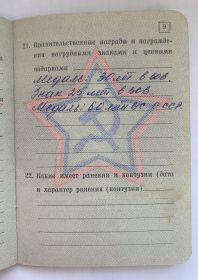 9
21. Правительственные награды и награжде-
ния нагрудными знаками и ценными
подарками
Медаль: 30 лет в ов.
Знак 25 лет в ВОВ
Медаль: 60 лет ВС СССР
22. Какие имеет ранения и контузии (дата
и характер ранения (контузии)